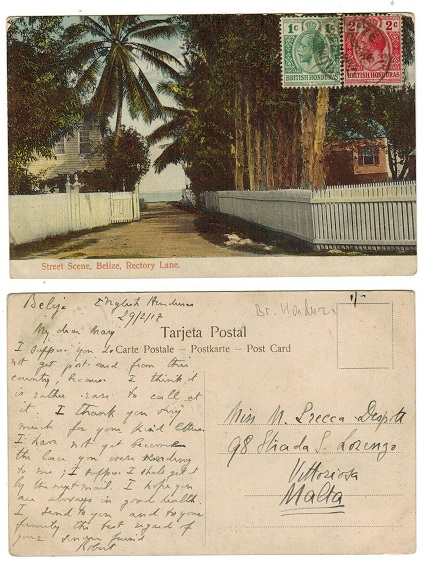 1c 1c
BRITISH HONDURAS
2c 2c
BRITISH HONDURAS
Street Scene, Belize, Rectory Lane.
Belize English Honduras
29/2/18
Br. Honduras
Tarjeta Postal
Carte Postale - Postkarte - Post Card
My dear Mary
I suppose you do
not get post-card from this
country, because I think it
is rather rare to call at
it. I thank you very
much for your kind letters.
I have not yet
the lace you were sending
to me; I suppose I shall get it
by the next mail. I hope you
are always in good health.
I send to you and to your
family the best regards of
your friend
Robert
Miss M.
98 Strada S. Lorenzo
Vittoriosa
Malta